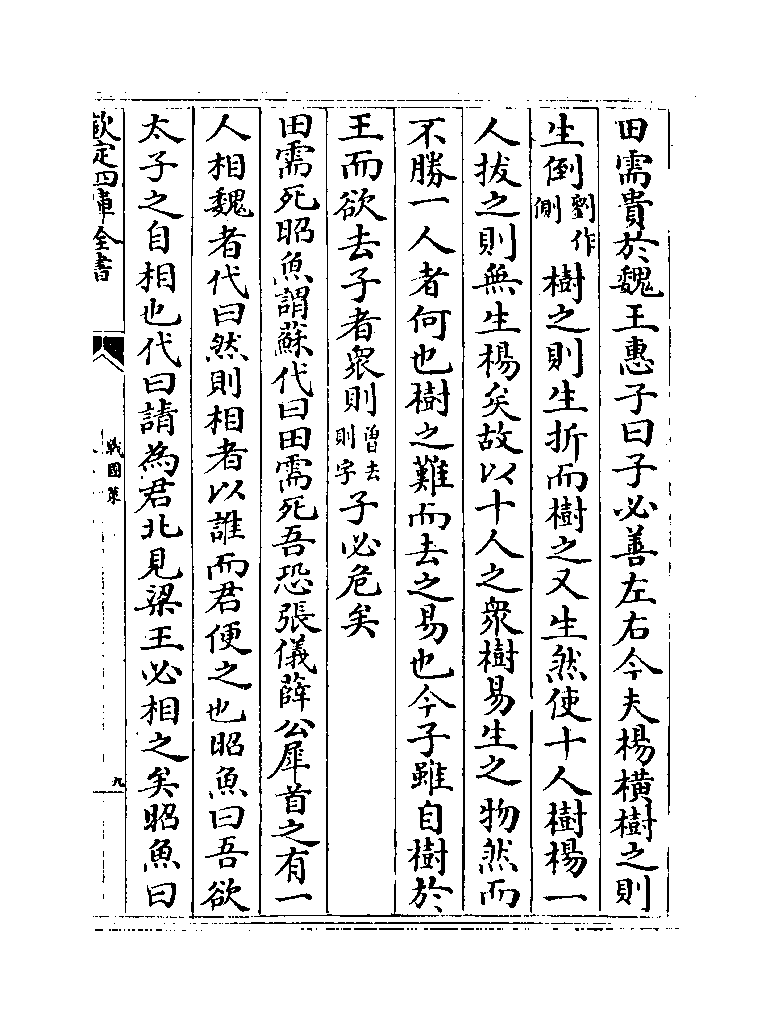 田需貴於魏王惠子曰子必善左右今夫楊橫樹之則
生倒劉作側樹之則生折而樹之又生然使十人樹楊一
人拔之則無生楊矣故以十人之衆樹易生之物然而
不勝一人者何也樹之難而去之易也今子雖自樹於
王而欲去子者衆則曾去則字子必危矣
田需死昭魚謂蘇代曰田需死吾恐張儀薛公犀首之有一
人相魏者代曰然則相者以誰而君便之也昭魚曰吾欲
太子之自相也代曰請為君北見梁王必相之矣昭魚曰
欽定四庫全書
戰國策
九